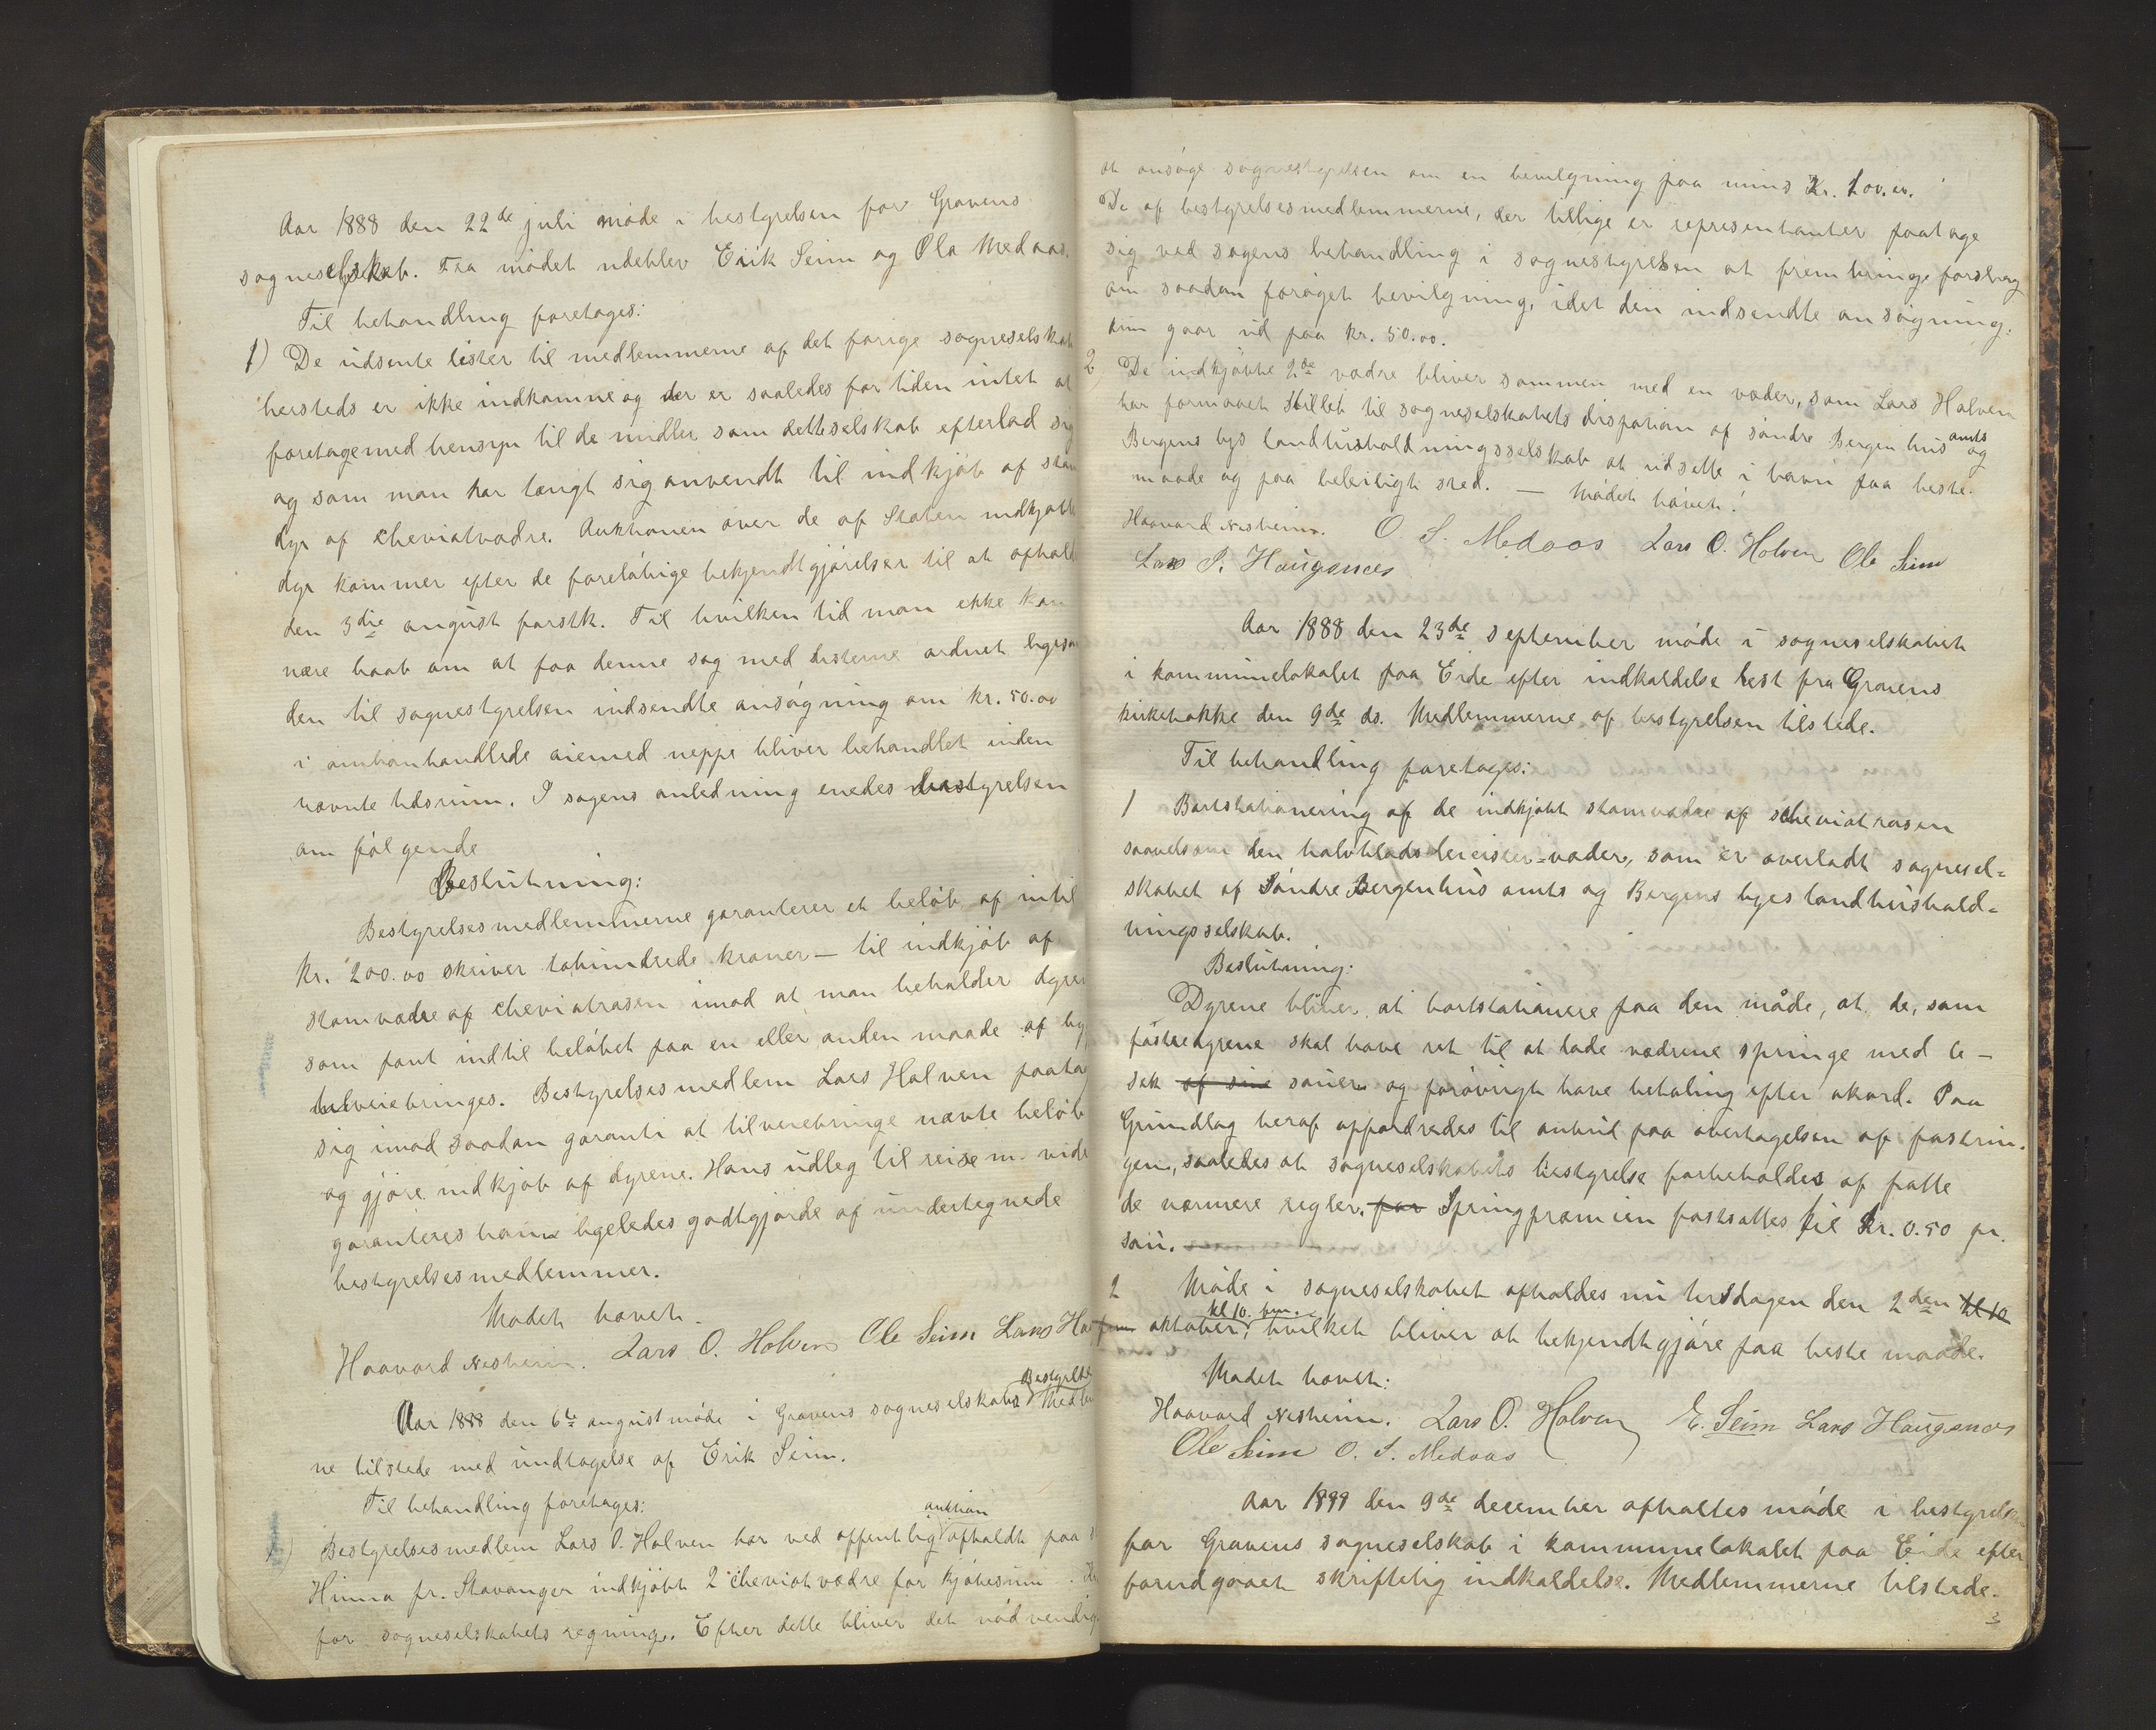 Aar 1888 den 22de juli møde i bestyrelsen for Gravens
sogneselskab. Fra mødet udeblev Erik Seim og Ola Medaas.
Til behandling foretages:
1) De udsente lister til medlemmerne af det forige sogneselskab
hersteds er ikke indkomne og der er saaledes for tiden intet at
foretage med hensyn til de midler som dette selskab efterlod sig
og som man har tængt sig anvendt til indkjøb af stam
dyr af cheviotvædre. Auktionen over de af Staten indkjøbte
dyr kommer efter de foreløbige bekjendtgjørelser til at afhold
den 3die august førstk. Til hvilken tid man ikke kan
nære haab om at faa denne sag med listerne ordnet ligesom
den til sognestyrelsen indsendte ansøgning om kr. 50.00
i omhanhandlede øiemed neppe bliver behandlet inden
nævnte tidsrum. I sagens anledning enedes bestyrelsen
om følgende
Beslutning:
Bestyrelsesmedlemmerne garanterer et beløb af intil
kr. 200.00 skriver tohundrede kroner — til indkjøb af
stamvædre af cheviotrasen imod at man beholder dyrene
som pant indtil beløbet paa en eller anden maade af
tilveiebringes. Bestyrelsesmedlem Lars Halven paatag
sig imod saadan garanti at tilveiebringe nævte beløb
og gjøre indkjøb af dyrene. Hans udleg til reise m. vide
garanteres ham ligeledes godtgjorde af undertegnede
bestyrelsesmedlemmer.
Mødet hævet.
Haavard Nesheim. Lars O. Holven Ole Seim Lars Hau
Aar 1888 den 6te august møde i Gravens sogneselskabs Bestyrelse Medlem
ne tilstede med undtagelse af Erik Seim.
Til behandling foretages:
1) Bestyrelsesmedlem Lars O. Holven har ved offentlig auktion afholdt paa
Hinna pr. Stavanger indkjøbt 2 cheviotvædre for kjøbesum
for sogneselskabets regning. Efter dette bliver det nødvendig
at ansøge sognestyrelsen om en bevilgning paa minds Kr. 100.00.
De af bestyrelsesmedlemmerne, der tillige er representanter paatage
sig ved sagens behandling i sognestyrelsen at frembringe forslag
om saadan forøget bevilgning, idet den indsendte ansøgning
kun gaar ud paa kr. 50.00.
2) De indkjøbte 2de vædre bliver sammen med en væder, som Lars Holven
har formaaet stillet til sogneselskabets disposion af søndre Bergenhus amts og
Bergens bys landhusholdningsselskab at udsette i havn paa beste
maade og paa beleiligt sted. — Mødet hævet!
Haavard Nesheim. O. S. Medaas Lars O. Holven Ole Seim
Lars P. Haugsnæs
Aar 1888 den 23de september møde i sogneselskabet
i kommunelokalet paa Eide efter indkaldelse lest fra Gravens
kirkebakke den 9de ds. Medlemmerne af bestyrelsen tilstede.
Til behandling foretages:
1 Bortstationering af de indkjøbt stamvædre af scheviotrasen
saavelsom den halvblods leicister-væder, som er overladt sognesel-
skabet af Søndre Bergenhus amts og Bergens byes landhushold-
ningsselskab.
Beslutning:
Dyrene bliver at bortstationere paa den måde, at de, som
fostrer dyrene skal have ret til at lade vædrene springe med be-
sæt af sine sauer og forøvrigt have betaling efter akord. Paa
Grundlag heraf oppfordredes til anbud paa overtagelsen af fostrin-
gen, saaledes at sogneselskabets bestyrelse forbeholdes af fatte
de nærmere regler. for Springpræmien fastsattes til kr. 0.50 pr.
sau.
2 Møde i sogneselskabet afholdes nu tirsdagen den 2den kl 10
fm oktober, kl 10. fm. hvilket bliver at bekjendtgjøre paa beste maade.
Mødet hævet:
Haavard Nesheim. Lars O. Holven E. Seim Lars Haugsnæs
Ole Seim O. S. Medaas
Aar 1899 den 9de december afholtes møde i bestyrelsen
for Gravens sogneselskab i kommunelokalet paa Eide efter
forudgaaet skriftelig indkaldelse. Medlemmerne tilstede.
3